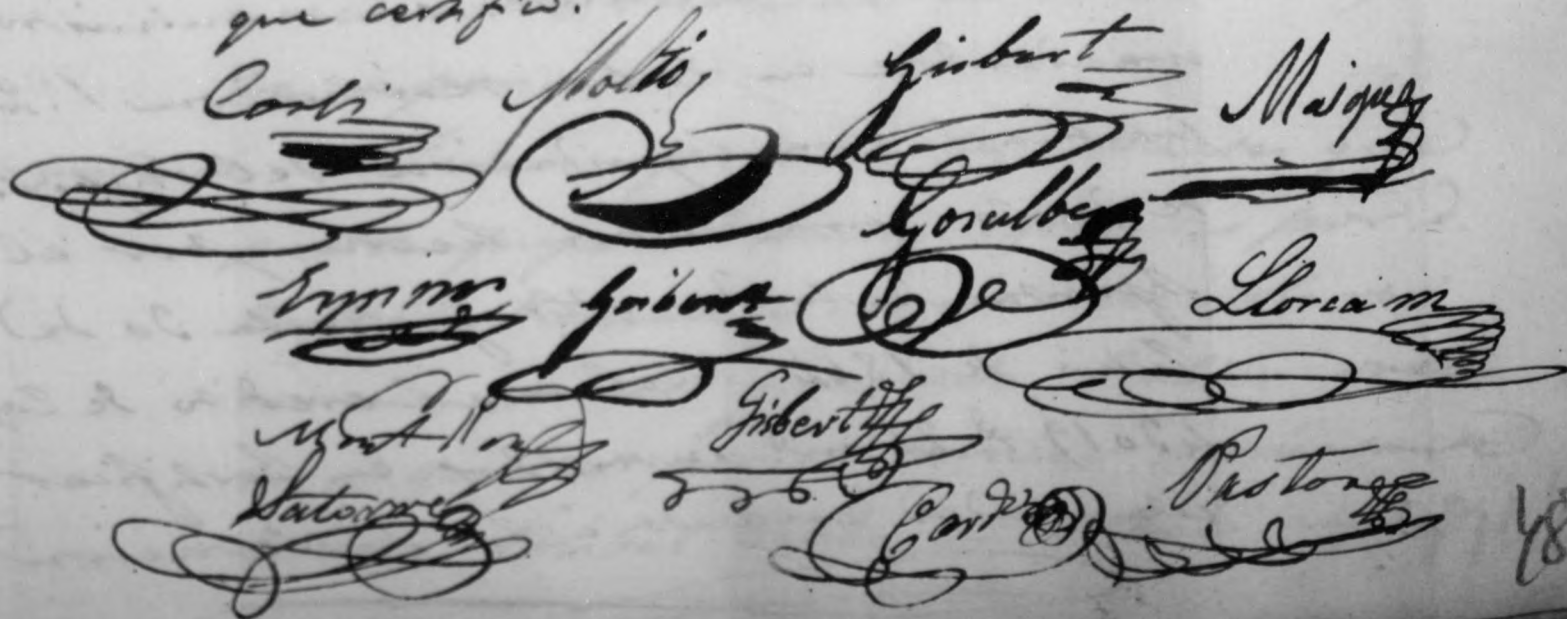 que certifico.
Corbi Moltó Gisbert Maiques
Gosalbez
Gisbert Llorca m
Gisbert
Satorre Pastor
48